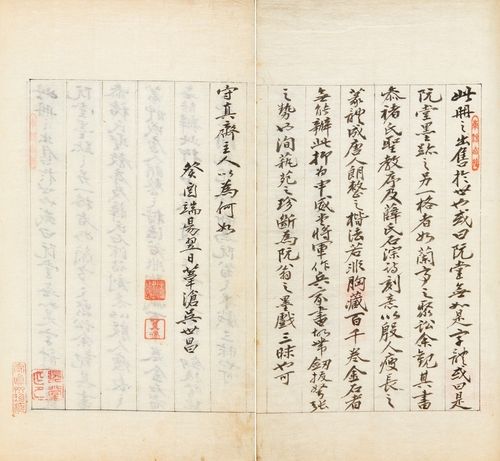 此冊之出售於世也或曰阮堂無如是字體或曰是
阮堂墨跡之另一格者如蘭亭之聚訟余觀其書
參褚氏聖教序及薛氏石淙詩刻意以殷人瘦長之
篆神成唐人朗整之楷法若非胸藏百千卷金石者
無能辦此抑為申威堂將軍作兵家書故帶劒拔弩張
之勢也洵藝苑之珍斷為阮翁之墨戲三昧也可
守真齋主人以為何如
癸酉端陽翌日葦滄吳世昌